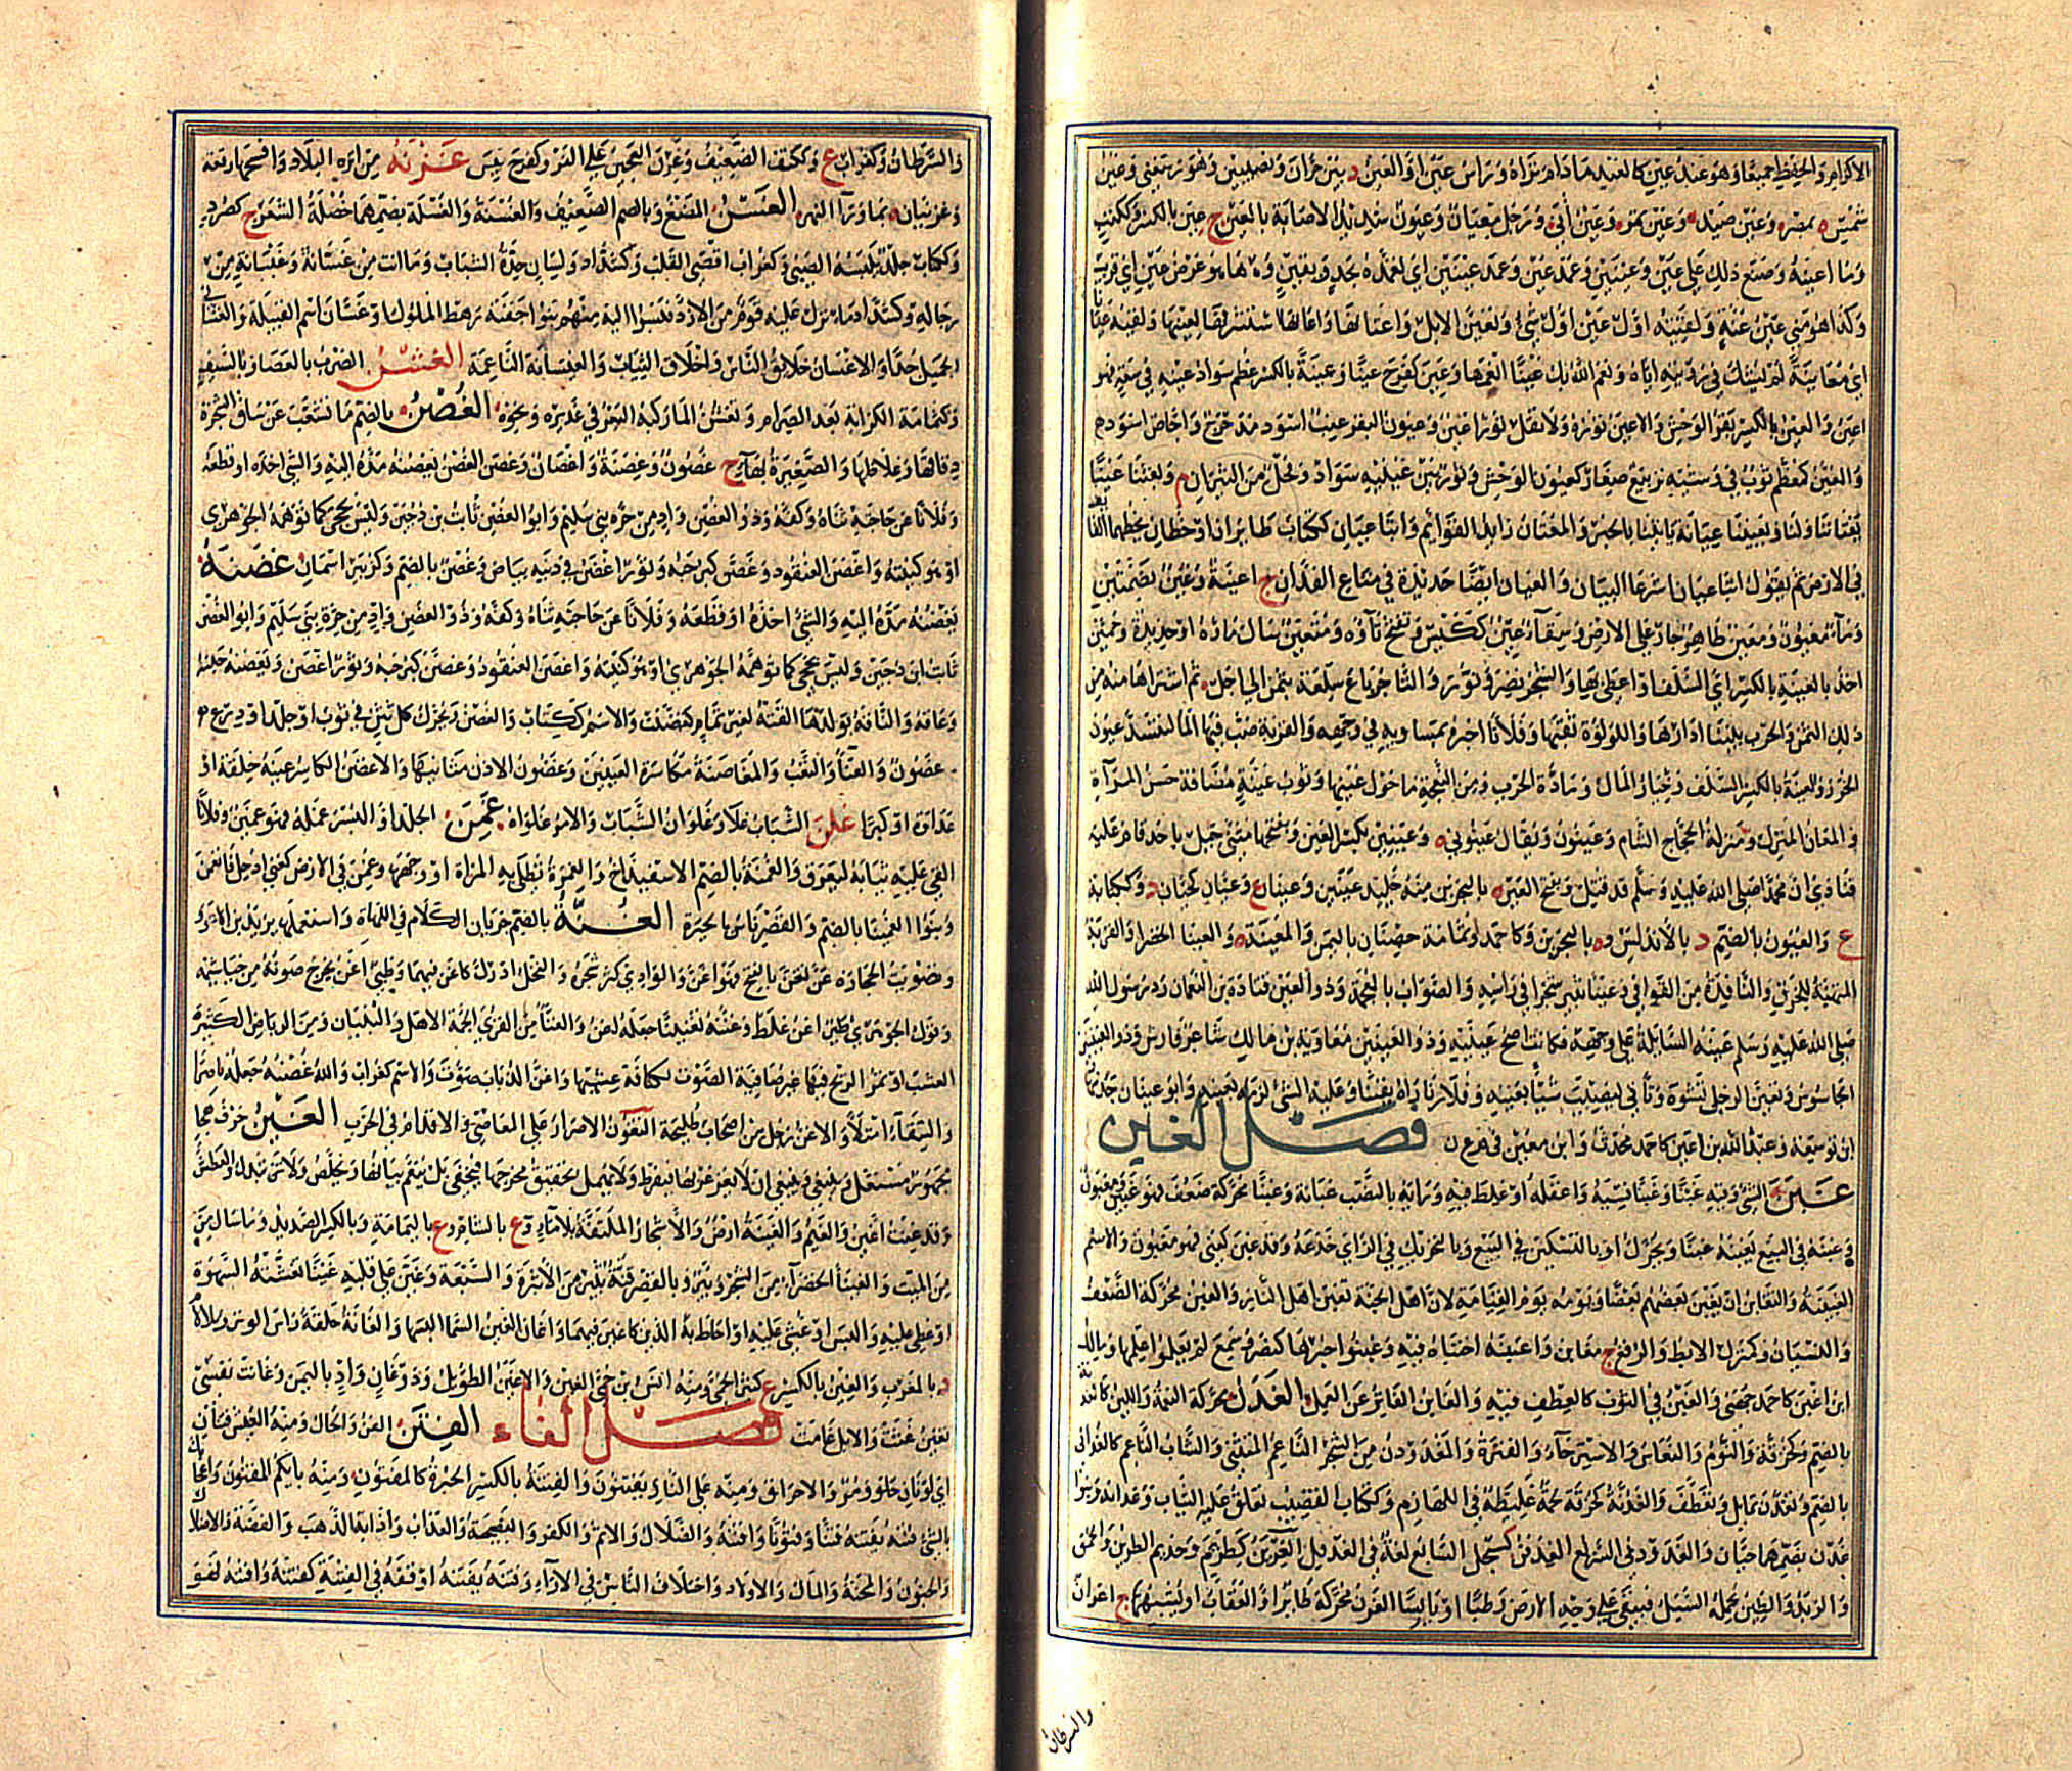 الاكرام والحفيظ جميعا وهو عبد عين كالعبيد ما دام تراه وراس عين او العين د بين حران ونصيبين وهو رسعني وعين
شمس ه بمصر وعين صيد ه وعين تمر ه وعين أبى ه ورجل معيان وعيون شديد الاصابة بالعين ج عين بالكسر وككتب
وما اعينه وصنع ذلك على عين وعينين وعمد عين وعمد عينين اي تعمده بجد ويقين وها هو عرض عين اي قريب
وكذا هو مني عين عنة ولقيته اول عين اول شئ وتعين الابل واعتانها واعانها استشرفها ليعينها ولقيته عيانا
اي معاينة لم يشك في رؤيته اياه ونعم الله بك عينا انعمها وعين كفرح عينا وعينة بالكسر عظم سواد عينه في سعة فهو
اعين والعين بالكسر بقر الوحش والاعين ثوره ولا تقل ثور اعين وعيون البقر عنب اسود مدحرج واجاص اسود
والمعين كمعظم ثوب في وشيه ترابيع صغار كعيون الوحش وثور بين عينيه سواد وفحل من الثيران م وبعثنا عينا
يعتاننا ولنا ويعيننا عيانة ياتينا بالخبر والمعتان رايد القوم وابنا عيان ككتاب طايران او خطان يخطهما العائف
في الارض ثم يقول ابنا عيان اسرعا البيان والعيان ايضا حديدة في متاع الفدان ج اعينة وعين بضمتين
وماء معيون ومعين ظاهر جار على الارض وسقاء عين ككيس وتفتح ياؤه ومتعين سال ماؤه او جديد
اخذ بالعينة بالكسر اي السلف او اعطى بها والشجر نضر ونور والتاجر باع سلعة بثمن الى اجل ثم اشتراها منه
ذلك الثمن والحرب بيننا ادارها واللولؤة ثقبها وفلانا اخبره بمساويه في وجهه والقربة صب فيها الماء لتنسد عيون
الخرز والعينة بالكسر السلف وخيار المال ومادة الحرب ومن النعجة ما حول عينيها وثوب عينة مضافة حسن المرآة
والمعان المنزل ومنزلة لحجاج الشام وعينون ويقال عينوني ه وعينين بكسر العين وفتحها مثنى جبل باحد قام عليه
فنادى ان محمدا صلى الله عليه وسلم قد قتل وبفتح العين ه بالبحرين منه خليد عينين وعينان ع وعيان كجيان د وككتابة
ع والعيون بالضم د بالاندلس وه بالبحرين وكاحمد وثمامة حصنان باليمن والمعينة ه والعينا الخضرا والقربة
المتهيئة للخرق والنافذة من القوافي
صلى الله عليه وسلم عينه السائلة على وجهه فكانت اصح عينيه وذو العينين معاوية بن مالك شاعر فارس وذو العينين
الجاسوس وتعين الرجل تشوه وتأنى ليصيب شيا بعينه وفلانا راه يقينا وعليه الشئ لزمه بعينه وابو عينان جد
ابن توسعة وعبد الله بن اعين كاحمد محدث وابن معين في م ع ن فصل الغين
غبن الشئ وفيه غبنا وغبنا نسيه واغفله او غلط فيه ورايه بالنصب غبانة وغبنا محركة ضعف فهو غبين ومغبون
وغبنه في البيع يغبنه غبنا ويحرك او بالتسكين في البيع وبالتحريك في الراي خدعه وقد غبن كعني فهو مغبون والاسم
الغبينة والتغابن ان يغبن بعضهم بعضا ويومه يوم القيامة لان اهل الجنة تغبن اهل النار والغبن محركة الضعف
والنسيان وكمنزل الابط والرفغ ج مغابن واغتبنه اختباه فيه وغبنوا خبرها كنصر وسمع لم يعلموا علمها ومالك
ابن اغبن كاحمد جهضمي والغبن في الثوب كالعطف فيه والغابن الفاتر عن العمل الغدن محركة النعمة واللين كالغدنة
بالضم وكحزقة والنوم والنعاس والاسترخاء والفترة والمغدودن من الشجر الناعم المتثني والشاب الناعم كالغداني
بالضم وتغدن تمايل وتعطف والغدنة كحزقة لحمة غليظة في اللهازم وككتاب القضيب تعلق عليه الثياب وغدانة وبنوا
غدن بضمهما حيان والغدودني السريع الغرين كسجل
والزبد والطين يحمله السيل فيبقى على وجه الارض رطبا او يابسا الغرن محركة طاير او العقاب او شبيههما ج اغران
والسرطان
والسرطان وكغراب ع وككتف الضعيف وغرن العجين على وكفرح يبس غزنة من انزه البلاد وافسحها رقعة
وغزنيان ه بما ورآ النهر الغسن المضغ وبالضم الضعيف والغسنة والغسلة بضمهما خصلة الشعر ج كصرد
وككتاب جلد يلبسه الصبي وكغراب اقصى القلب وكشداد ولبيان حدة الشباب وما انت من غسانة وغيسانة من
رجاله وكشداد ماء نزل عليه قوم من الازد فنسبوا اليه منهم بنوا جفنة رهط الملوك او غسان اسم القبيلة والغسانى
الجميل جدا والاغسان خلايق الناس واخلاق الثياب والغيسانة الناعمة الغشن الضرب بالعصا وبالسيف
وكثمامة الكرابة بعد الصرام وتغشن الما ركبه البعر في غدير ونحوه الغصن بالضم ما تشعب عن ساق الشجرة
دقاقها وغلاظها والصغيرة بهاء ج غصون وغصنة واغصان وغصن الغصن يغصنه مده اليه والشى اخذه او قطعه
وفلانا عن حاجته ثناه وكفه وذو الغصن واد من حرة بنى سليم وابوا الغصن ثابت بن دجين وليس بجحى كما توهمه الجوهرى
او هو كنيته واغصن العنقود وغصن كبر حبه وثور اغصن فى ذنبه بياض وغصن بالضم وكزبير اسمان غضنه
يغضنه مده اليه والشئ اخذه او قطعه وفلانا عن حاجته ثناه وكفه وذو الغصن واد من حرة بنى سليم وابو الغصن
ثابت ابن دجين وليس بجحى كما توهمه الجوهرى او هو كنيته واغصن العنقود وغصن كبر حبه وثور اغصن ويغضنه حبسه
وعاقه والناقة بولدها القته لغير تمام كغضنت والاسم ككتاب والغضن ويحرك كل تثن في ثوب او جلد او درع ج
غضون والعنا والتعب والمغاضنة مكاسرة العينين وغضون الاذن مثانيها والاغضن الكاسر عينه خلقة او
عداوة او كبرا غلن الشباب غلا وغلوان الشباب والامر غلواه غمن الجلد او البسر غمله فهو غمين وفلانا
القى عليه ثيابه ليعرق والغمنة بالضم الاسفيداج والغمرة تطلى به المراة وجهها وغمن في الارض كعني ادخل فانغمن
وبنوا الغمينا بالضم والقصر ناس بالحيرة الغنة بالضم جريان الكلام في اللهاة واستعملها يزيد بن الاعور
وتصويت الحجارة غن يغن بالفتح فهو اغن والوادي كثر شجره والنخل ادرك كاغن فيهما وظبي اغن يخرج صوته من خياشيمه
وقول الجوهري طير اغن غلط وغننه تغنينا جعله اغن والغنا من القرى الجمة الاهل والبنيان ومن الرياض الكثيرة
العشب او تمر الريح فيها غير صافية الصوت لكثافة عشبها واغن الذباب صوت والاسم كغراب والله غصنه جعله ناضرا
والسقاء امتلا والاغن رجل من اصحاب طليحة التغون الاصرار على المعاصي والاقدام في الحرب الغين حرف هجا
مجهور مستعل وينبغي ان لا يغرغر بها فيفرط ولا يهمل تحقيق مخرجها فيخفى بل ينعم بيانها ويخلص
وقد غينت اغين والغيم والغينة ارض والاشجار الملتفة بلا ماء وع بالشام وع باليمامة وبالكسر الصديد وما سال
من الميت والغينا الخضراء من الشجر وبئر وبالقصر قنة ثبير من الاثبرة والسبعة وغين على قلبه غينا تغشته الشهوة
او غطي عليه والبس او غشي عليه او احاط به الرين كاغين فيهما واغان الغين السما البسها والغانة حلقة راس الوتر وبلا لام
د بالمغرب والغين بالكسر ع كثير الحمى ومنه انس من حمى الغين والاغين الطويل وذو غان واد باليمن وغانت نفسي
تغين غثت والابل غامت فصل الفاء الفتن الفن والحال ومنه العيش فتنان
اي لونان حلو ومر والاحراق ومنه على النار يفتنون والفتنة بالكسر الخبرة كالمفتون ومنه بايكم المفتون واعجابك
بالشئ فتنه يفتنه فتنا وفتونا وافتنه والضلال والاثم والكفر والفضيحة والعذاب واذابة الذهب والفضة والاضلال
والجنون والمحنة والمال والاولاد واختلاف الناس في الاراء وفتنه يفتنه اوقعه في الفتنة كفتنه وافتنه فهو